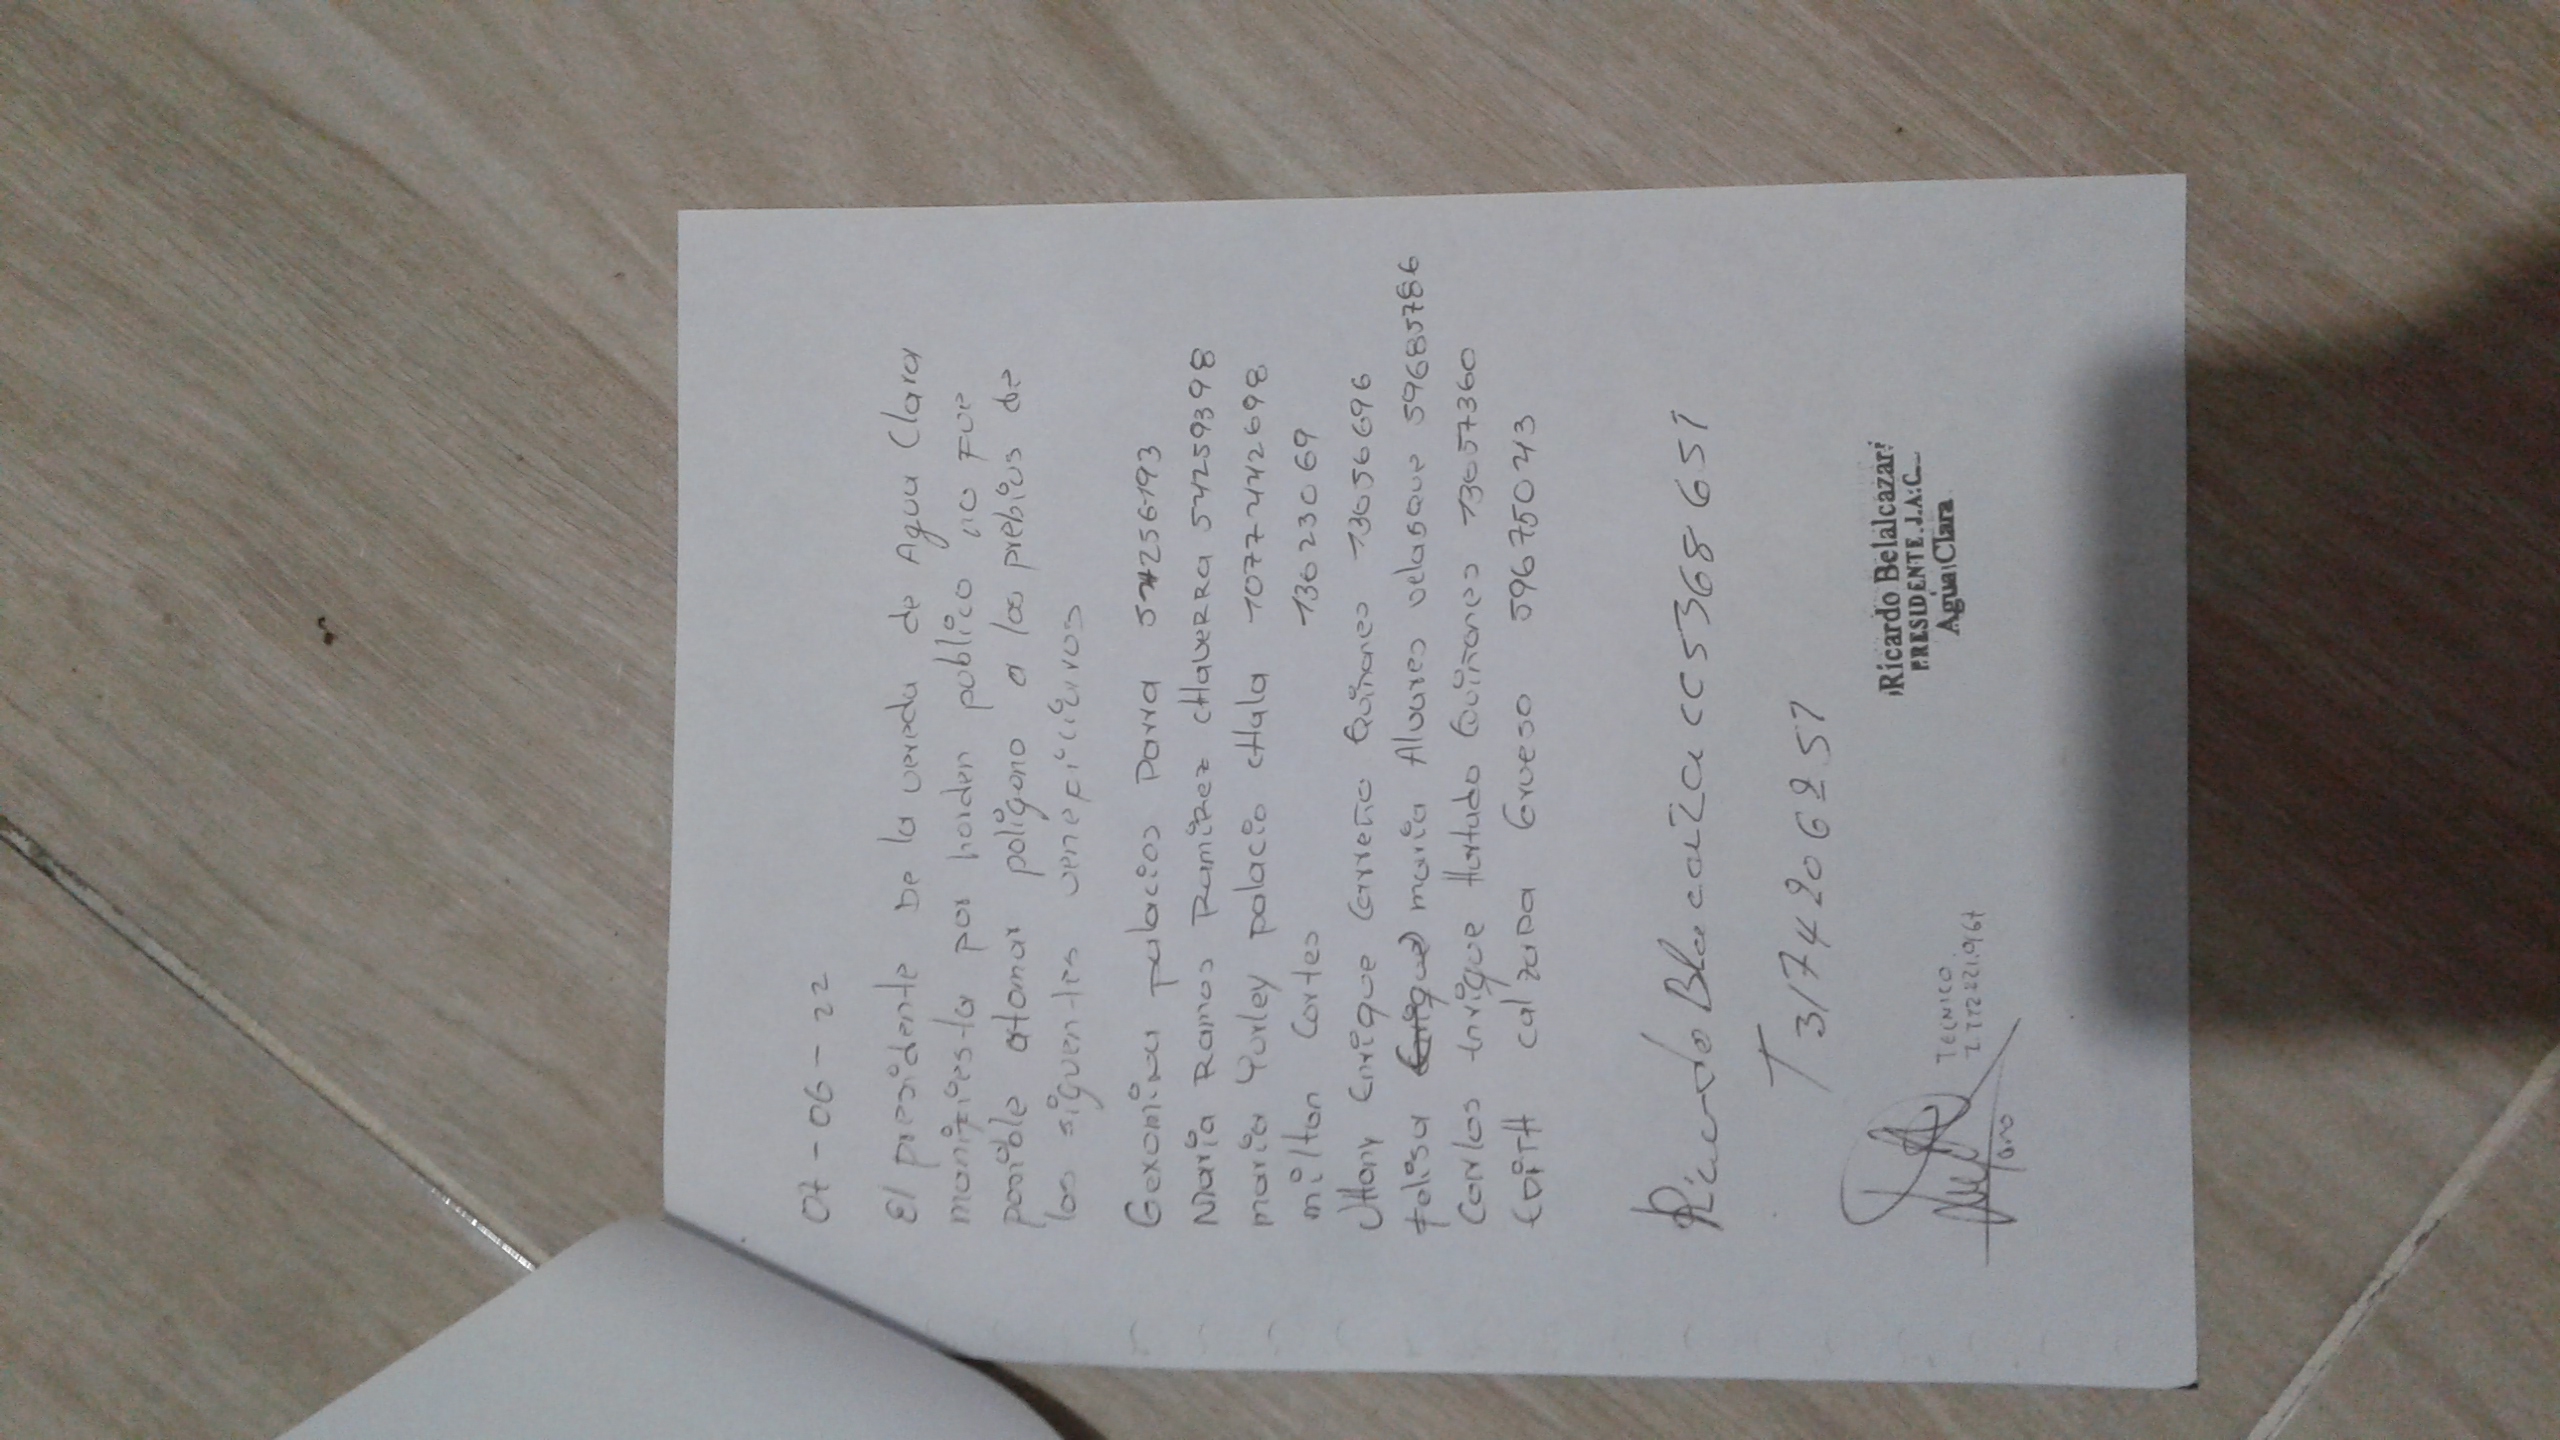 07-06-22
El presidente De la vereda de Agua Clara
manifiesta por horden publico no fue
posible atomar poligono a los prebius de
los siguentes veneficiaros
Geronima palacios Parra 54256193
Maria Ramos Ramirez cHaveRRa 54259398
maria Yurley palacio cHala 1077442698
milton Cortes 13623069
JHony Enrique Carreño Quiñones 13056696
felisa maria Alvares velasque 596857866
Carlos Enrique Hurtado Quiñones 13057360
EDITH calzada Grueso 59675043
Ricardo Blacaiza cc 5368651
T 3174206251
Ricardo Belalcazar
PRESIDENTE. J.A.C.
Agua Clara
TECNICO